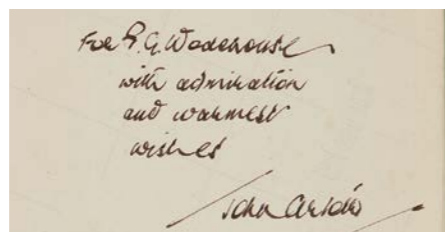 For P. G. Wodehouse
with admiration
and warmest
wishes
John